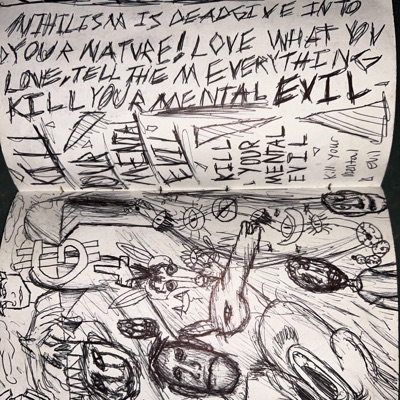 NIHILISM IS DEAD GIVE INTO
YOUR NATURE! LOVE WHAT YOU
LOVE, TELL THEM EVERYTHING
KILL YOUR MENTAL EVIL
KILL
YOUR
MENTAL
EVIL
KILL
YOUR
MENTAL
EVIL
Kill Your